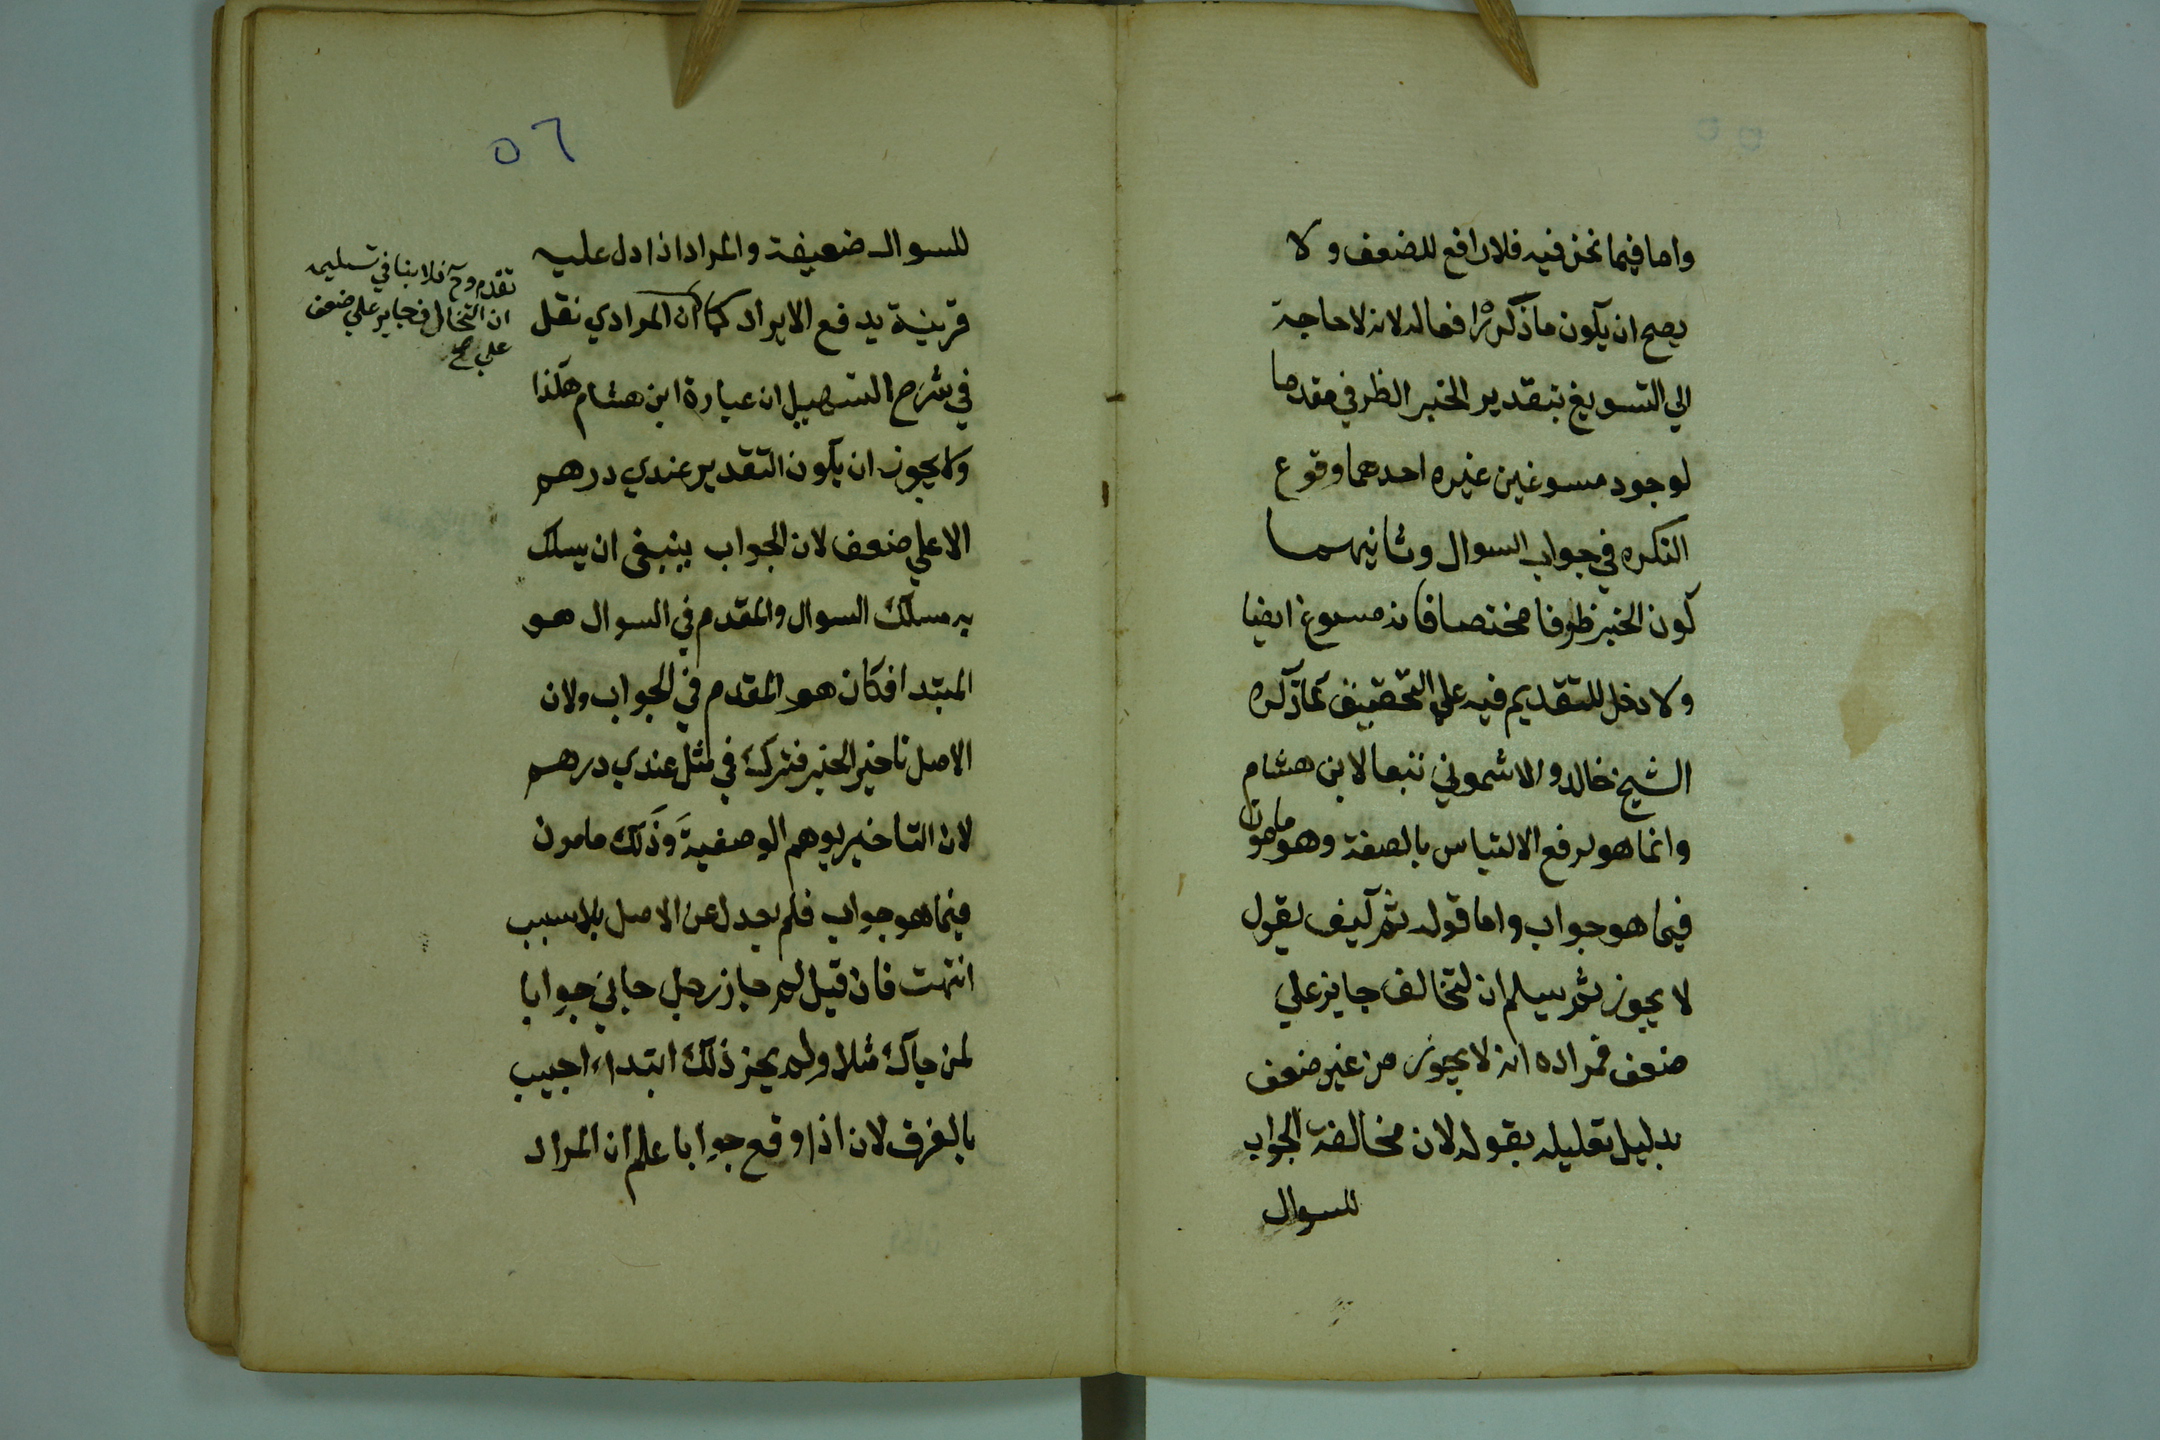 واما فيما نحن فيه فلا رافع للضعف ولا
يصح ان يكون ما ذكر رافعا له لانه لا حاجة
الي التسويغ بتقدير الخبر الظرفي مقدما
لوجود مسوغين غيره احدهما وقوع
النكره في جواب السوال وثانيهما
كون الخبر ظرفا مختصا فانه مسوغ ايضا
ولا دخل للتقديم فيه علي التحقيق كما ذكره
الشيخ خالد والاشموني تبعا لابن هشام
وانما هو لرفع الالتباس بالصفة وهو مامون
فيما هو جواب واما قوله ثم كيف يقول
لا يجوز ثم يسلم ان التخالف جايز علي
ضعف فمراده انه لا يجوز من غير ضعف
بدليل تعليله بقوله لان مخالفة الجواب
للسوال
٥٦
للسوال ضعيفة والمراد اذا دل عليه
قرينة يدفع الايراد كما ان المرادي نقل
في شرح التسهيل ان عبارة ابن هشام هكذا
ولا يجوز ان يكون التقدير عندي درهم
الا علي ضعف لان الجواب ينبغي ان يسلك
به مسلك السوال والمقدم في السوال هو
المبتدا فكان هو المقدم في الجواب ولان
الاصل تاخير الخبر فترك في مثل عندي درهم
لان التاخير يوهم الوصفية وذلك مامون
فيما هو جواب فلم يعدل عن الاصل بلا سبب
انتهت فان قيل لم جاز رجل جاني جوابا
لمن جاك مثلا ولم يجز ذلك ابتداء اجيب
بالفرق لانه اذا وقع جوابا علم ان المراد
تقدم وح فلا ينافي تسليمه
ان التخالف جايز علي ضعف
علي صح